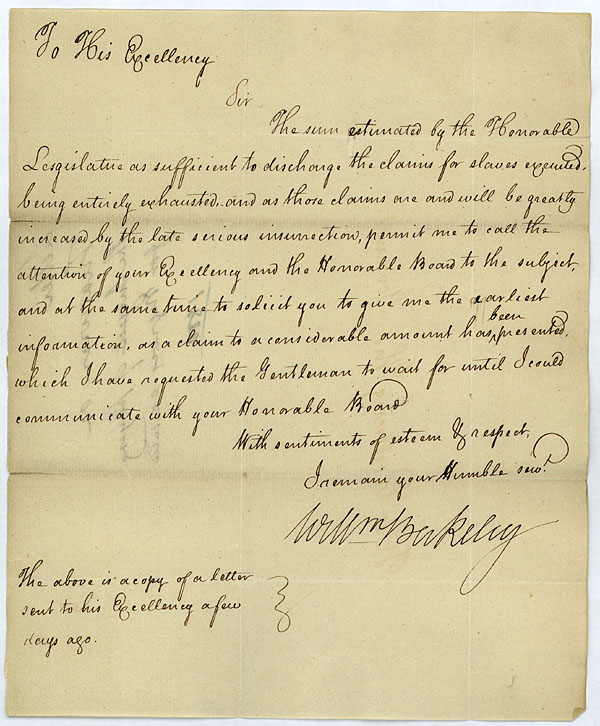 To His Excellency
Sir
The sum estimated by the Honorable
Lesgislatue as sufficient to discharge the claims for slaves executed,
being entirely exhausted, and as those claims are and will be greatly
increased by the late serious insurrection, permit me to call the
attention of your Excellency and the Honorable Board to the subject,
and at the same time to solicit you to give me the earliest
information, as a claim to a considerable amount has been presented,
which I have requested the Gentleman to wait for until I could
communicate with your Honorable Board
With sentiments of esteem & respect,
I remain your Humble servt.
Willm Berkeley
The above is a copy of a letter
sent to his Excellency a few
days ago.